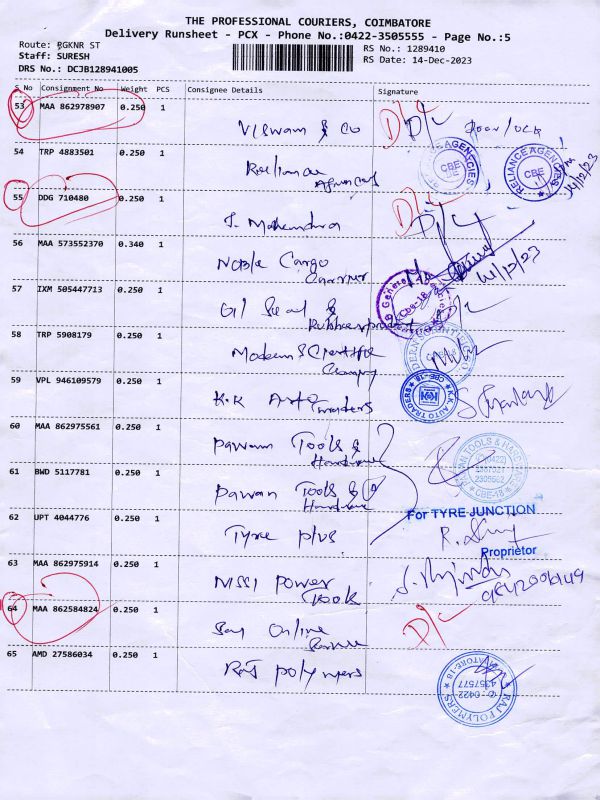 THE PROFESSIONAL COURIERS, COIMBATORE
Delivery Runsheet - PCX - Phone No.:0422-3505555 - Page No.:5
Route: RGKNR ST
RS No.: 1289410
Staff: SURESH
RS Date: 14-Dec-2023
DRS No.: DCJB128941005
S No Consignment No Weight PCS Consignee Details Signature
53 MAA 862978907 0.250 1
Viswam & Co D/L Door lock
54 TRP 4883501 0.250 1
Reliance
Agencies
RELIANCE AGENCIES CBE
RELIANCE AGENCIES CBE
14/12/23
55 DDG 710480 0.250 1
J. Mahendra D/L
56 MAA 573552370 0.340 1
Noble Cargo
14/12/23
57 IXM 505447713 0.250 1
Oil Seal &
Rubber product
58 TRP 5908179 0.250 1
Modern Scientific
Company
59 VPL 946109579 0.250 1
K.K Auto
Traders
K.K. AUTO TRADERS CBE-18
60 MAA 862975561 0.250 1
Pawan Tools &
Hardware
61 BWD 5117781 0.250 1
Pawan Tools &
Hardware
PAWAN TOOLS & HARDWARE
2305562
CBE-18
62 UPT 4044776 0.250 1
Tyre plus
For TYRE JUNCTION
Proprietor
63 MAA 862975914 0.250 1
Power
Tools
64 MAA 862584824 0.250 1
Online
D/L
65 AMD 27586034 0.250 1
Raj polymers
RAJ POLYMERS
0422
4357577